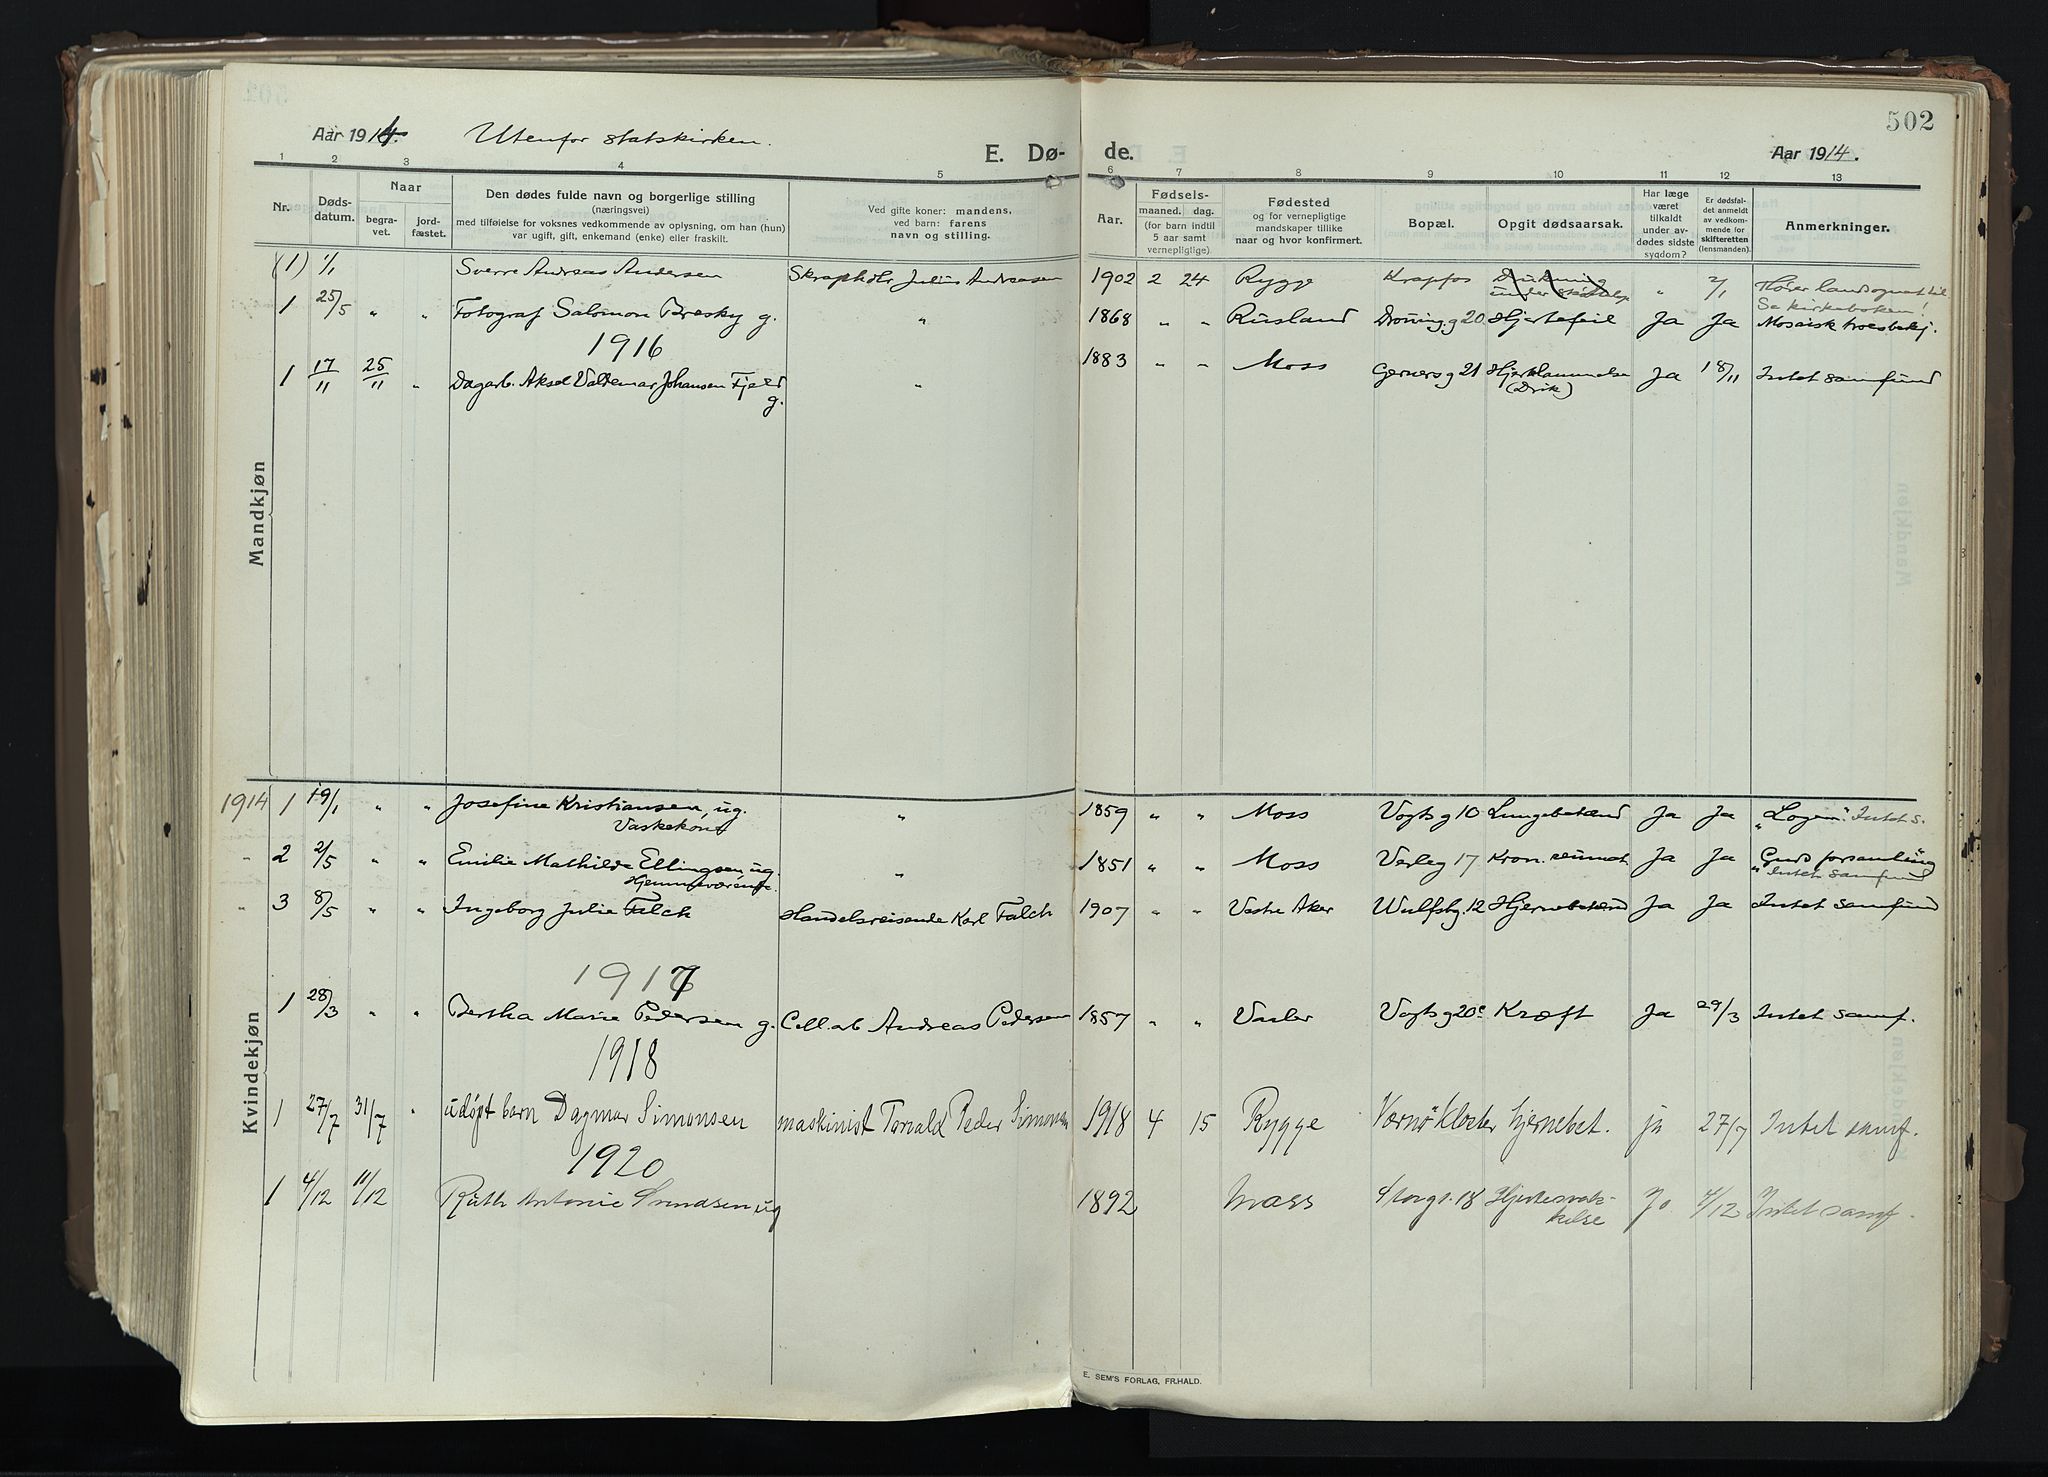 502
Aar 1914. Utenfor statskirken. E. Dø- de. Aar 1914.
1 2 3 4 5 6 7 8 9 10 11 12 13
Nr. Døds-datum. Naar begra-vet. jord-fæstet. Den dødes fulde navn og borgerlige stilling (næringsvei) med tilføielse for voksnes vedkommende av oplysning, om han (hun) var ugift, gift, enkemand (enke) eller fraskilt. Ved gifte koner: mandens, ved barn: farens navn og stilling. Aar. Fødsels- maaned. dag. (for barn indtil 5 aar samt vernepligtige) Fødested og for vernepligtige mandskaper tillike naar og hvor konfirmert. Bopæl. Opgit dødsaarsak. Har læge været tilkaldt under av-dødes sidste sygdom? Er dødsfal-det anmeldt av vedkom-mende for skifteretten (lensmanden). Anmerkninger.
Mandkjøn
(1) 1/1 Sverre Andreas Andersen Julius Andreasen 1902 2 24 Rygge Krapfos Drukning under " 2/1 Hører landsognet til
Se kirkeboken!
1 25/5 " " Fotograf Salomon Bresky g. " 1868 " " Rusland Dronning.g 20 Hjertefeil Ja Ja Mosaisk troesbekj.
1916
1 17/11 25/11 " Dagarb. Aksel Valdemar Johansen Fjeld g. " 1883 " " Moss Gerners g 21 Hjertelammelse (Drik) Ja 18/11 Intet samfund
Kvindekjøn
1914 1 19/1 " " Josefine Kristiansen, ug. Vaskekone " 1859 " " Moss Vogts g 10 Lungebetænd Ja Ja "Logen". Intet s.
" 2 2/5 " " Emilie Mathilde Ellingsen, ug. Hjemmeværende. " 1851 " " Moss Verleg 17 Kron. reumat. Ja Ja "Guds forsamling"
Intet samfund
" 3 8/5 " " Ingeborg Julie Falch Handelsreisende Karl Falch 1907 " " Vestre Aker Wulfsbg. 12 Hjernebetænd Ja Ja Intet samfund
1917
1 28/3 " " Bertha Marie Pedersen g. Cell.arb Andreas Pedersen 1857 " " Vaaler Vogts g 20c Kræft Ja 29/3 Intet samf.
1918
1 27/7 31/7 " udøpt barn Dagmar Simonsen maskinist Torvald Peder Simonsen 1918 4 15 Rygge Værnø Kloster hjernebet. ja 27/7 Intet samf.
1920
1 4/12 11/12 Ruth Antonie Svendsen ug 1892 Moss Storgt. 18 Hjertesvækkelse Ja 4/12 Intet samf.
E. SEM'S FORLAG, FR.HALD.